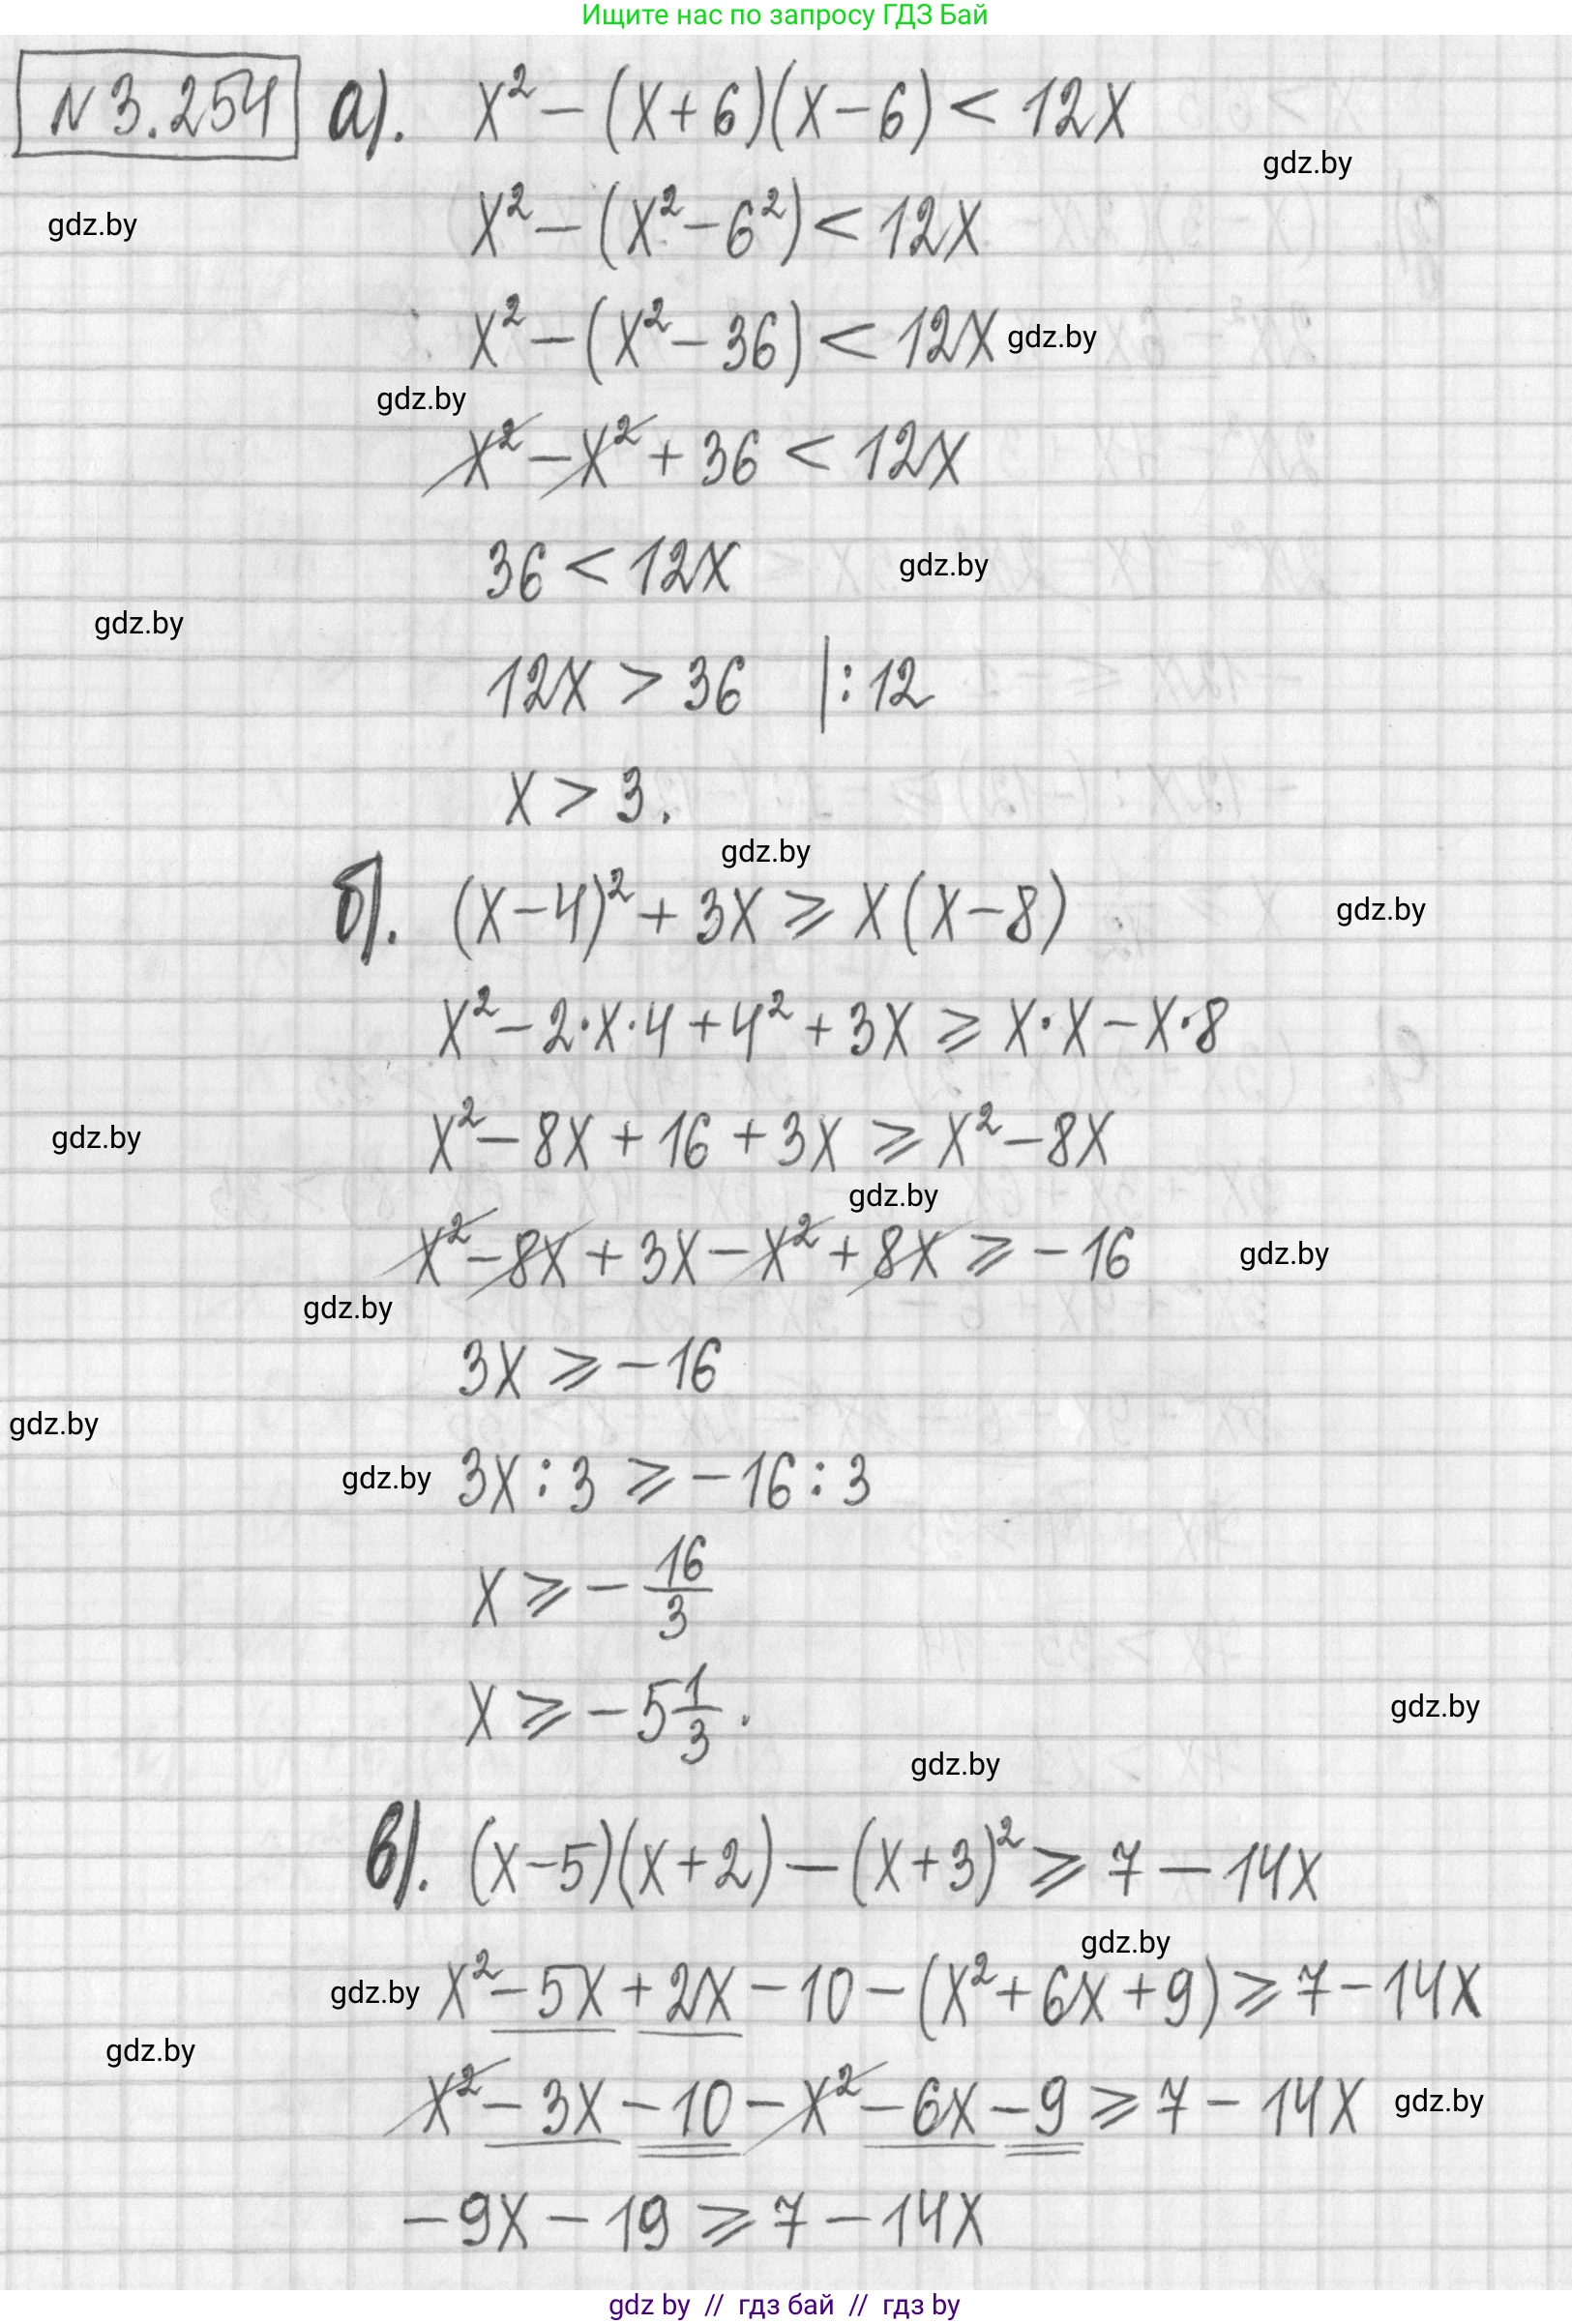 Ищите нас по запросу ГДЗ Бай
N 3.254 а). x² − (x + 6)(x − 6) < 12x
gdz.by
gdz.by
x² − (x² − 6²) < 12x
x² − (x² − 36) < 12x gdz.by
gdz.by
x² − x² + 36 < 12x
36 < 12x gdz.by
gdz.by
12x > 36 | : 12
x > 3.
gdz.by
б). (x − 4)² + 3x ⩾ x(x − 8) gdz.by
x² − 2·x·4 + 4² + 3x ⩾ x·x − x·8
gdz.by x² − 8x + 16 + 3x ⩾ x² − 8x
gdz.by
x² − 8x + 3x − x² + 8x ⩾ −16 gdz.by
gdz.by
3x ⩾ −16
gdz.by
gdz.by 3x : 3 ⩾ −16 : 3
x ⩾ − 16/3
x ⩾ −5 1/3. gdz.by
gdz.by
в). (x − 5)(x + 2) − (x + 3)² ⩾ 7 − 14x
gdz.by
gdz.by x² − 5x + 2x − 10 − (x² + 6x + 9) ⩾ 7 − 14x
gdz.by
x² − 3x − 10 − x² − 6x − 9 ⩾ 7 − 14x gdz.by
−9x − 19 ⩾ 7 − 14x
gdz by // гдз бай // гдз by